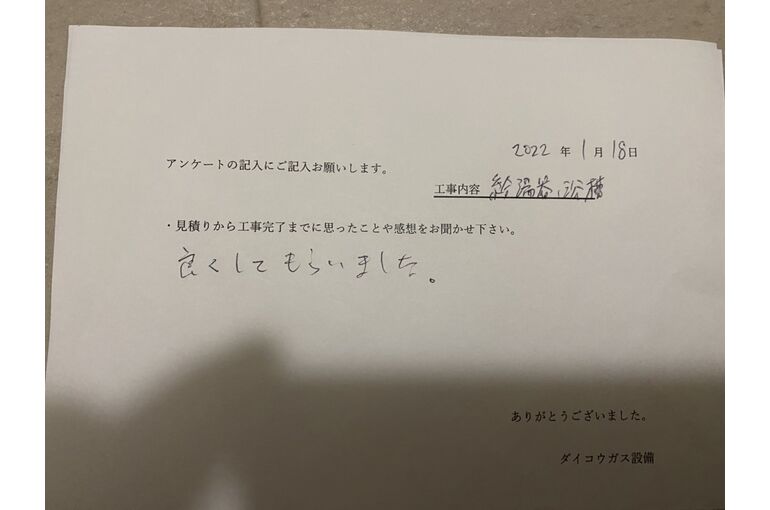 2022 年 1 月 18 日
アンケートの記入にご記入お願いします。
工事内容 給湯器、浴槽
・見積りから工事完了までに思ったことや感想をお聞かせ下さい。
良くしてもらいました。
ありがとうございました。
ダイコウガス設備